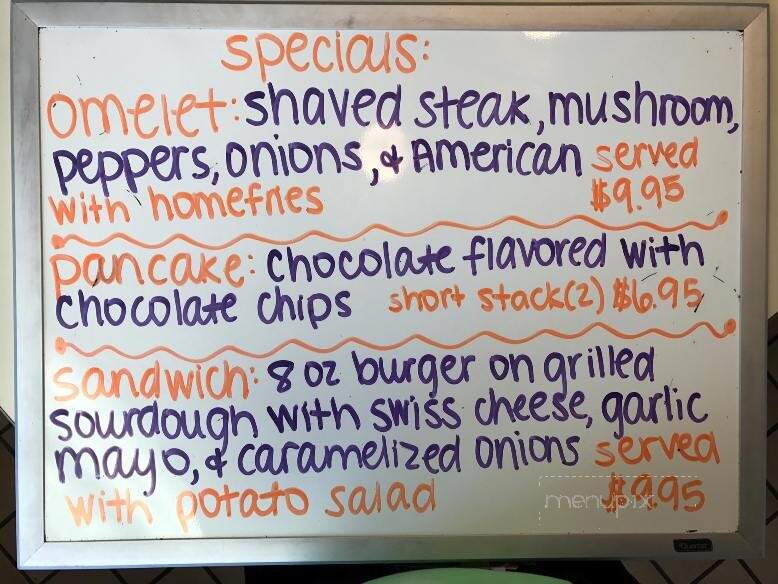 specials:
omelet: shaved steak, mushroom,
peppers, onions, & American served
with homefries $9.95
pancake: chocolate flavored with
chocolate chips short stack(2) $6.95
sandwich: 8 oz burger on grilled
sourdough with swiss cheese, garlic
mayo, & caramelized onions served
with potato salad $9.95
menupix
Quartet